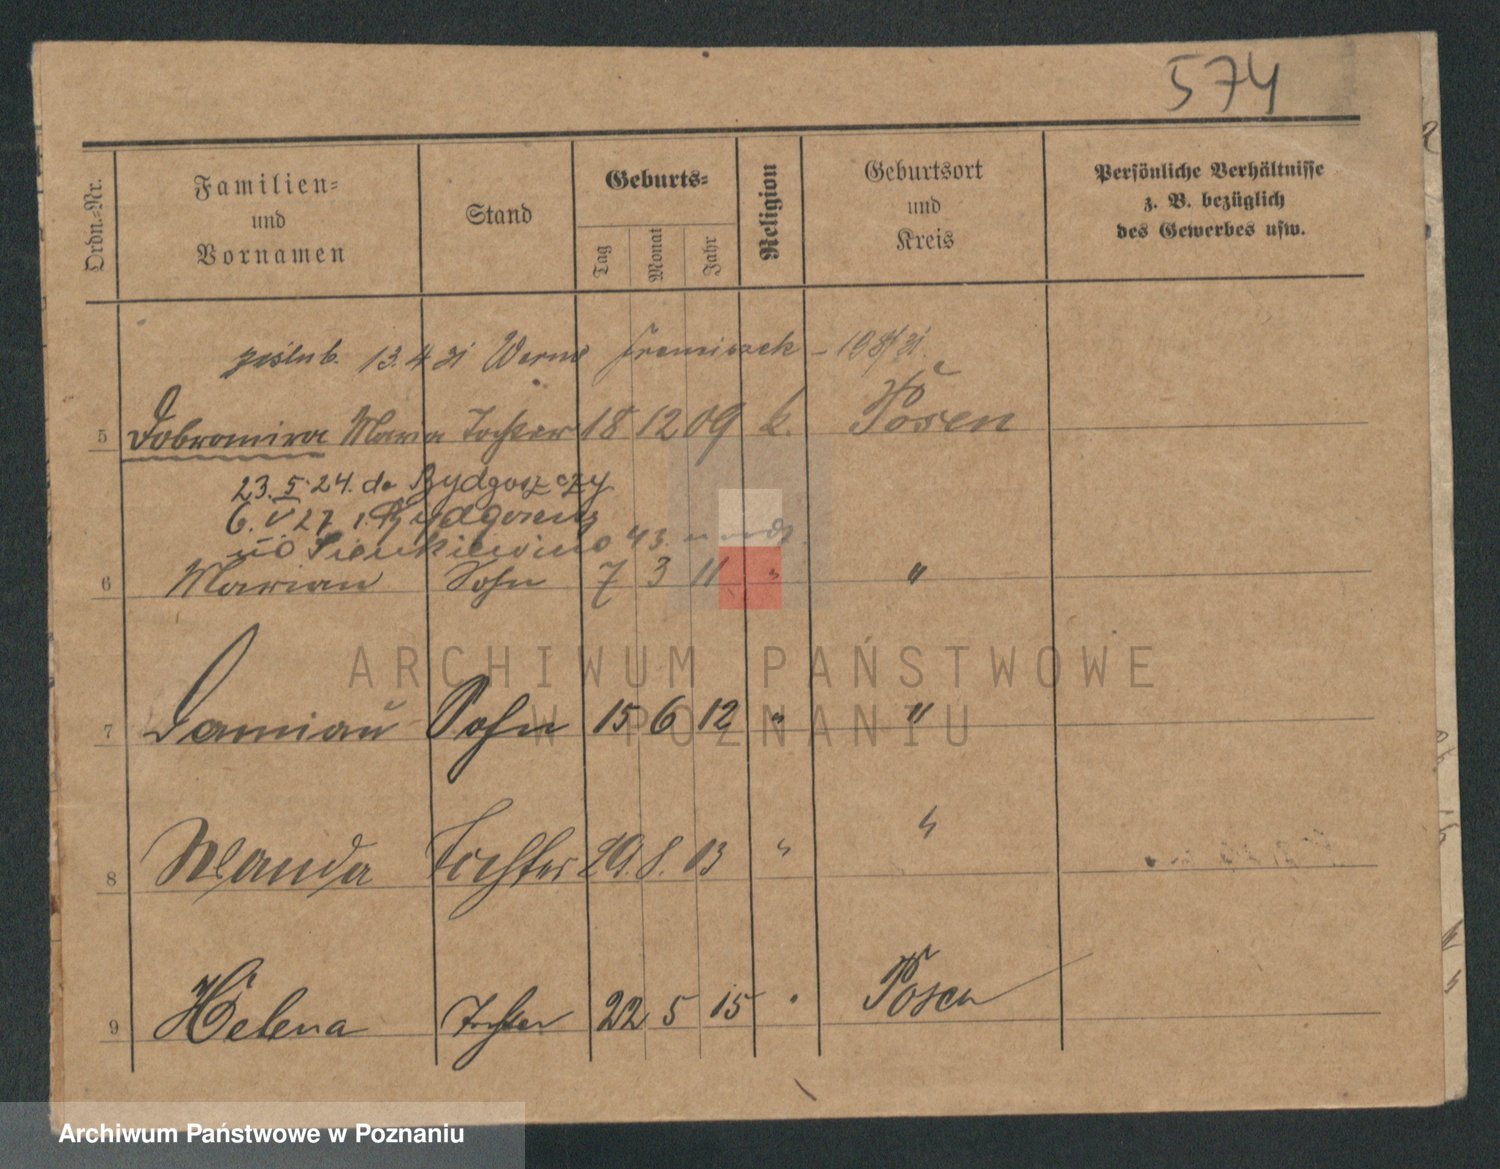 574
Ordn.-Nr.
Familien-
und
Vornamen
Stand
Geburts-
Tag
Monat
Jahr
Religion
Geburtsort
und
Kreis
Persönliche Verhältnisse
z. B. bezüglich
des Gewerbes usw.
poślub. 13.4 31
5 Dobromira Maria Tochter 18 12 09 k. Posen
23.5.24. do Bydgoszczy
6. V 27
6 Marian Sohn 7 3 11 " "
7 Damian Sohn 15 6 12 " "
8 Wanda Tochter 29. 8. 13 " "
9 Helena Tochter 22 5 15 " Posen
ARCHIWUM PAŃSTWOWE
W POZNANIU
Archiwum Państwowe w Poznaniu